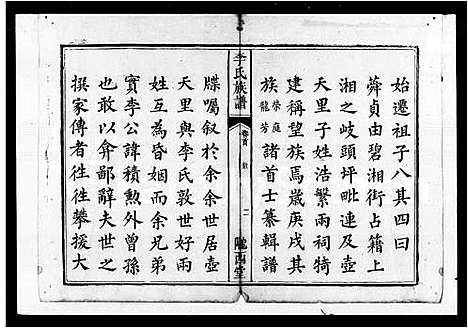 始遷祖子八其四曰
蕣貞由碧湘街占籍上
湘之岐頭坪毗連及壺
天里子姓浩繁兩祠犄
建稱望族焉歲庚戌其
族榮庭龍芳諸首士纂輯譜
李氏族譜
卷首
敘
二
隴西堂
牒囑叙於余余世居壺
天里與李氏敦世好兩
姓互為昏姻而余兄弟
實李公諱積勲外曾孫
也敢以弇鄙辭夫世之
撰家傳者徃徃攀援大